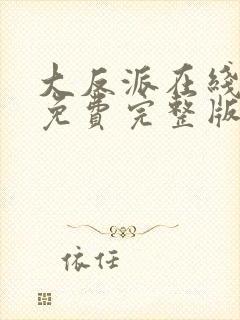 大反派在线
免费完整版
依任